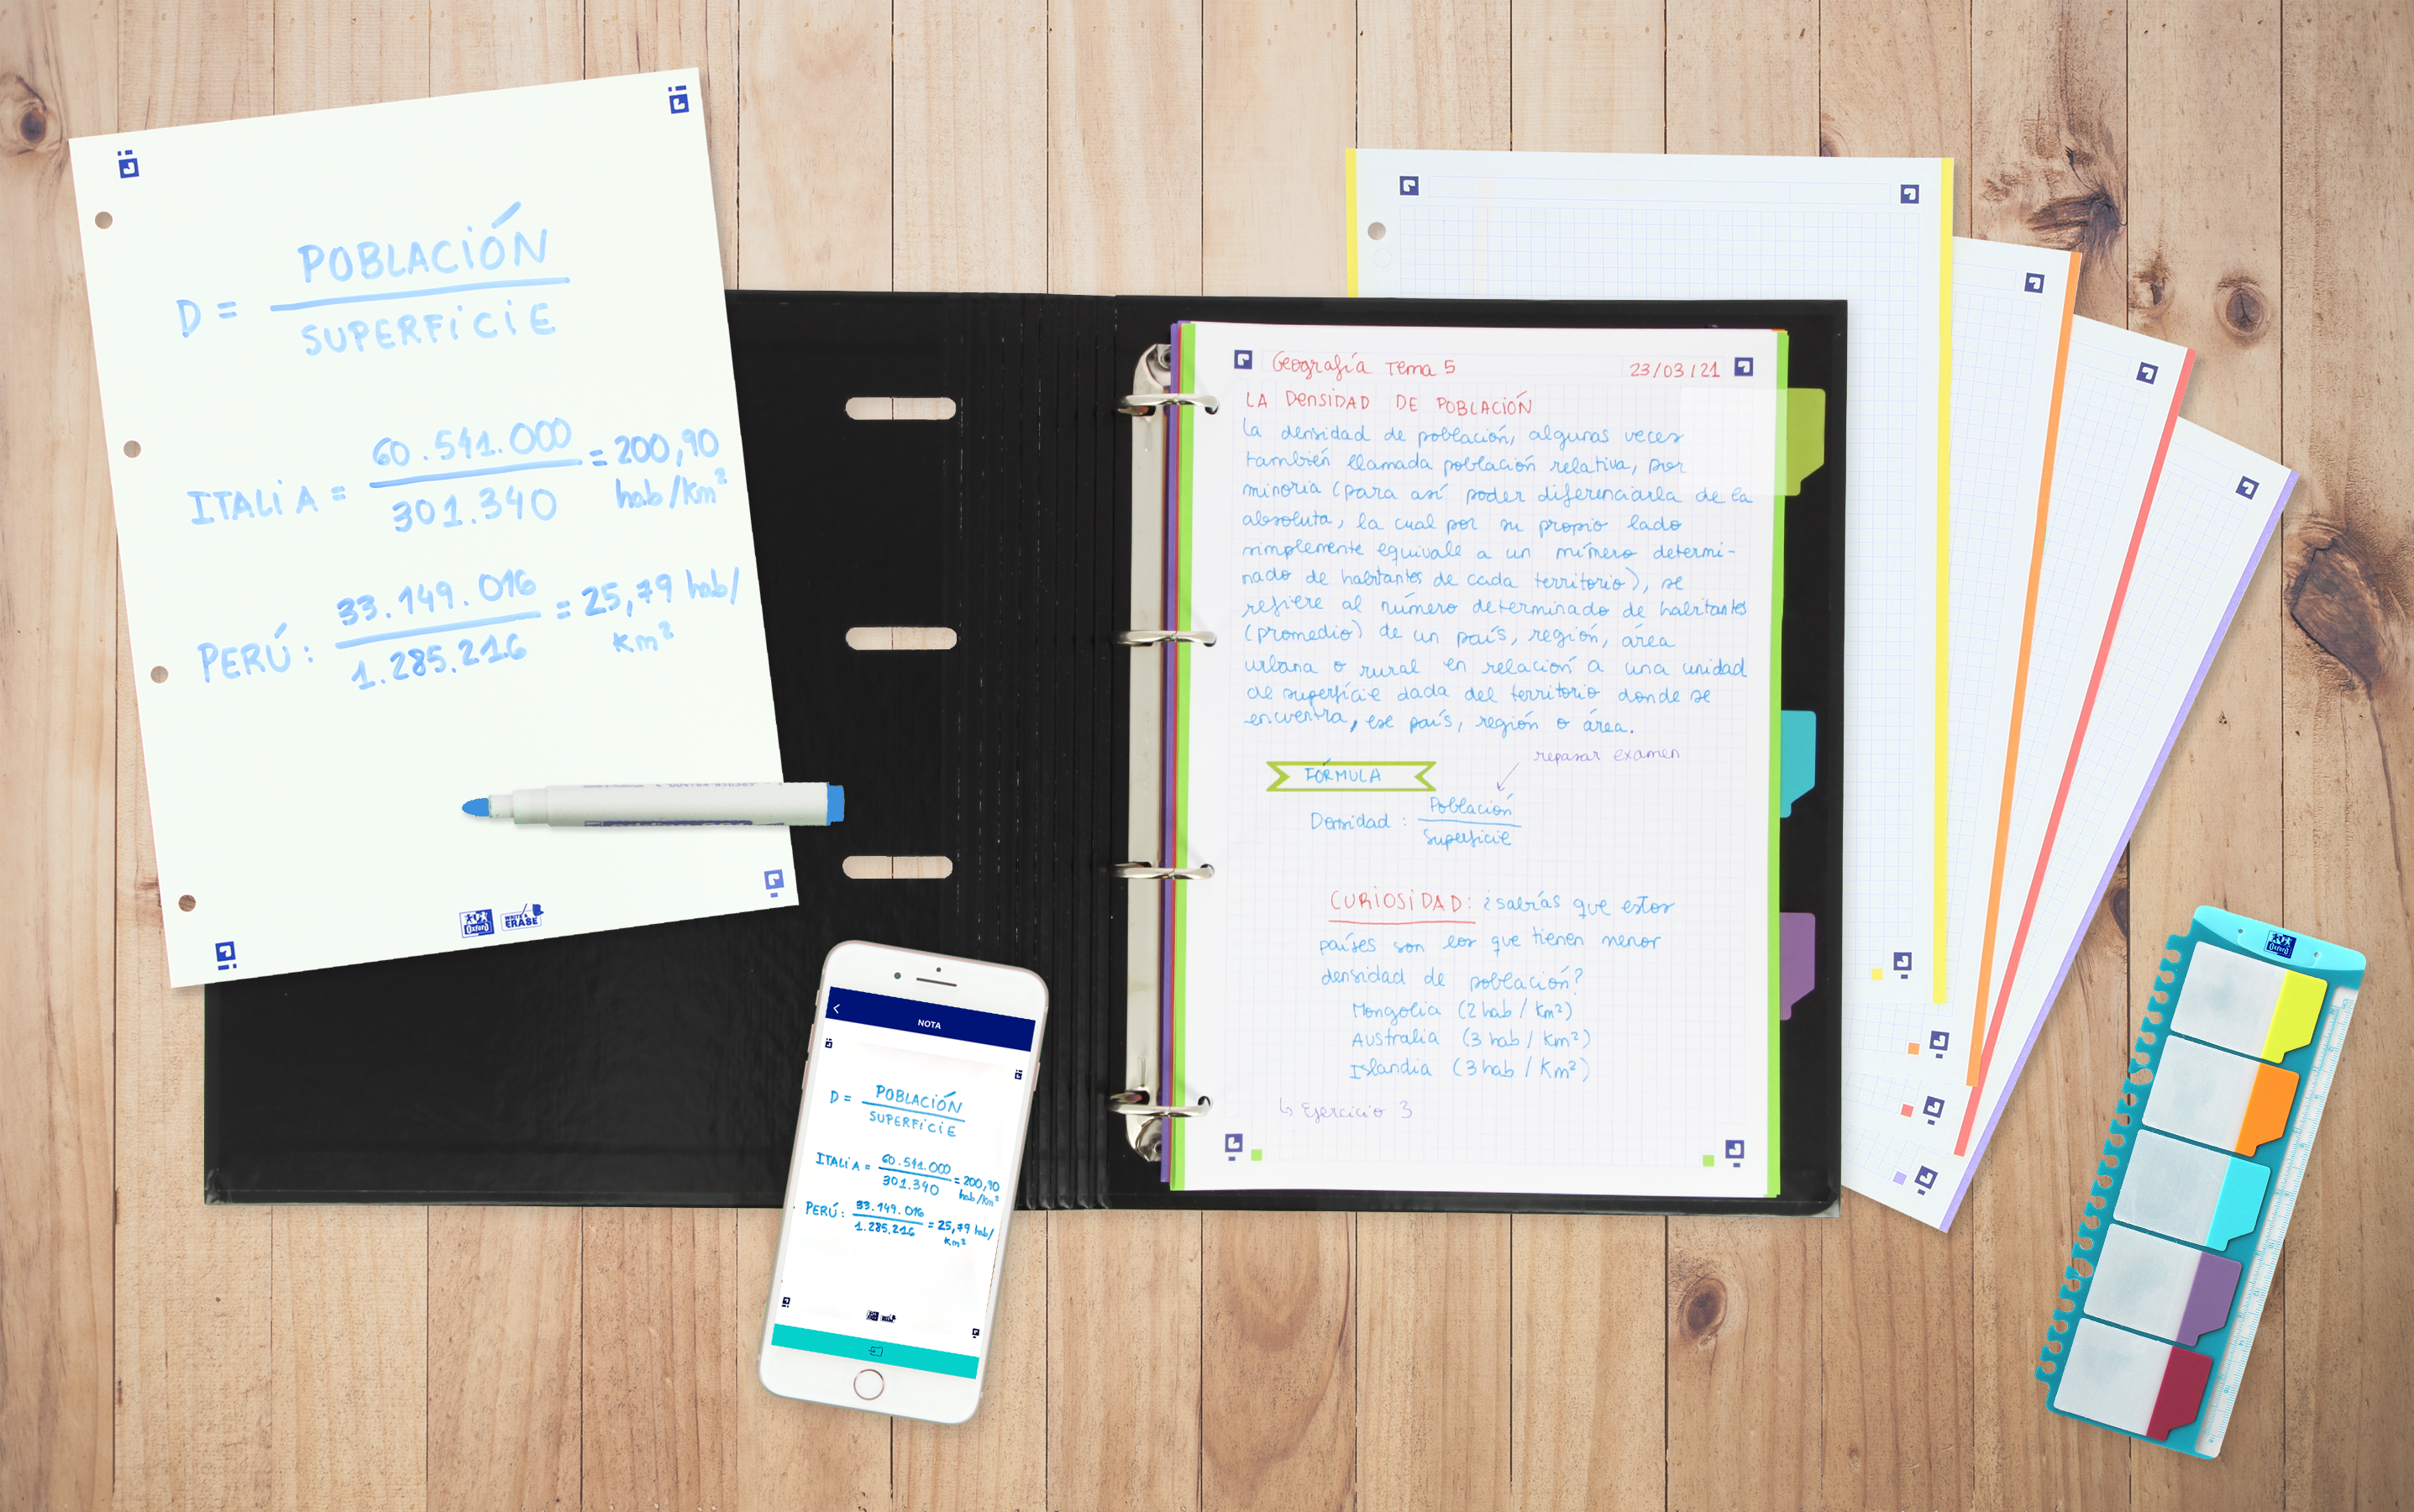 D = POBLACIÓN
SUPERFICIE
ITALIA = 60.541.000 = 200,90
301.340 hab/km²
PERÚ: 33.149.016 = 25,79 hab/
1.285.216 km²
Oxford WRITE & ERASE
Geografía Tema 5 23/03/21
LA DENSIDAD DE POBLACIÓN
La densidad de población, algunas veces
también llamada población relativa, por
minoria (para así poder diferenciarla de la
absoluta, la cual por su propio lado
simplemente equivale a un número determi-
nado de habitantes de cada territorio), se
refiere al número determinado de habitantes
(promedio) de un país, región, área
urbana o rural en relación a una unidad
de superfície dada del territorio donde se
encuentra, ese país, región o área.
repasar examen
FÓRMULA
Densidad : Población
Superficie
CURIOSIDAD: ¿sabías que estos
países son los que tienen menor
densidad de población?
Mongolia (2 hab / Km²)
Australia (3 hab / Km²)
Islandia (3 hab / Km²)
↳ Ejercicio 3
NOTA
D = POBLACIÓN
SUPERFICIE
ITALIA = 60.541.000 = 200,90
301.340 hab/km²
PERÚ: 33.149.016 = 25,79 hab/
1.285.216 km²
Oxford